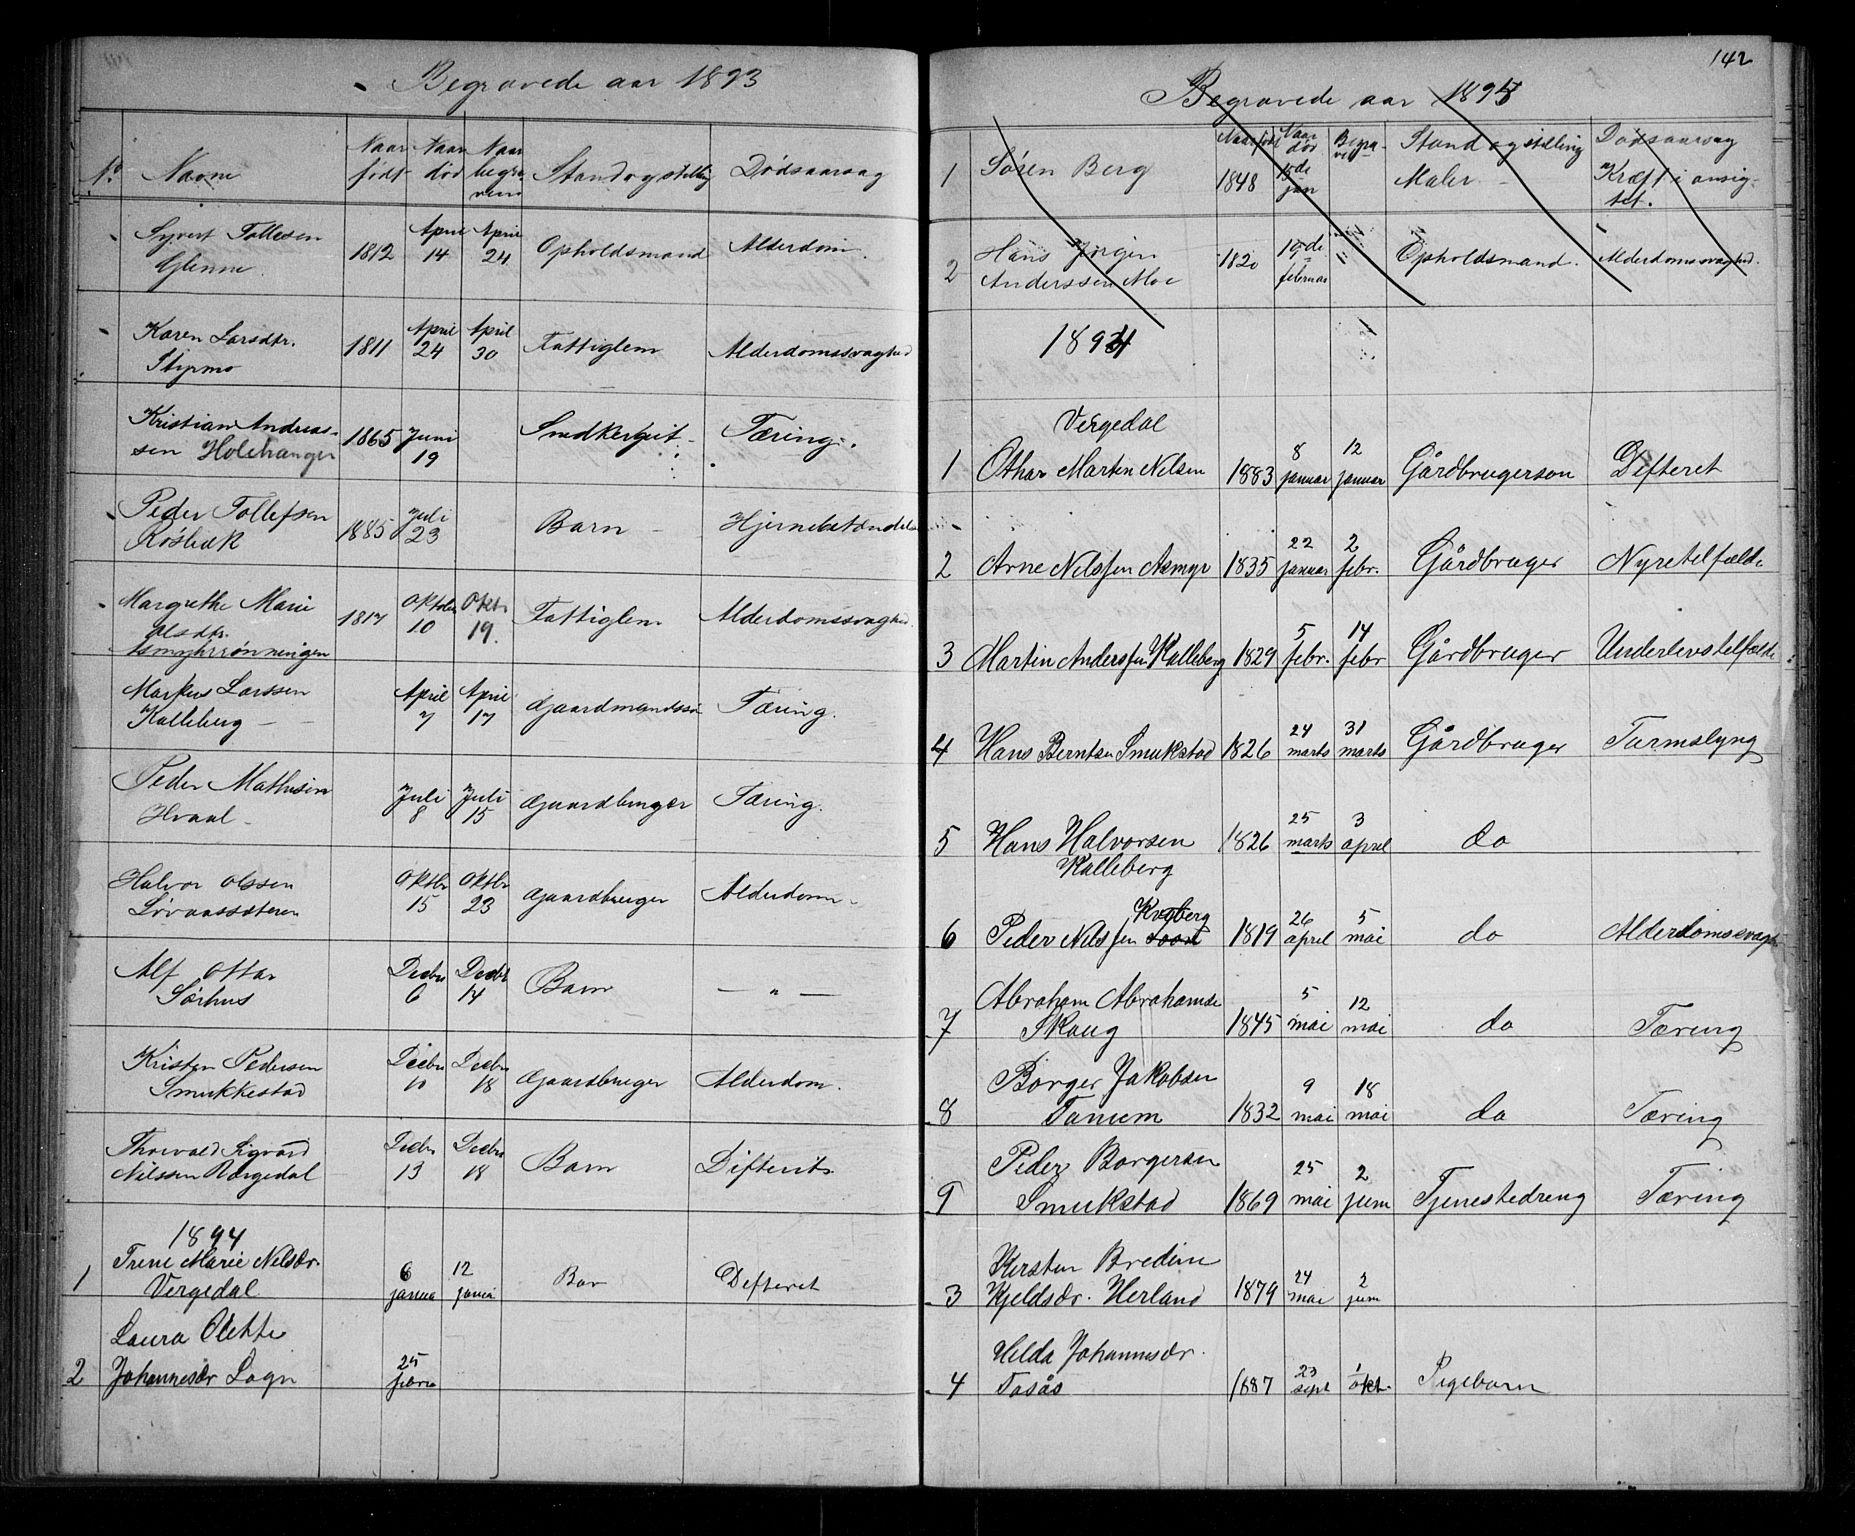 Begravede aar 1893
No. Navne Naar født Naar død Naar begravene Stand og stilling Dødsaarsag
Syvert Tollefsen Glenne. 1812 April 14 April 24 Opholdsmand Alderdom.
Karen Larsdtr. Styrmo 1811 April 24 April 30 Fattiglem Alderdomssvaghed
Kristian Andreassen Holehanger 1865 Juni 19 Smedkergut Tæring.
Peder Tollefsen Rosbæk 1885 Juli 23 Barn Hjernebetændelse
Margrethe Marie Olsdtr. Asmyhrrønningen 1817 Oktober 10 Oktr 19. Fattiglem Alderdomssvaghed.
Markus Larssen Kalleberg April 7 April 17 Gaardmandssøn Tæring.
Peder Mathisen Hvaal Juli 8 Juli 15 Gaardbruger Tæring.
Halvor Olssen Løvaassæteren Oktbr 15 Oktbr 23 Gaardbruger Alderdom
Alf Ottar Sørhus Decbr 6 Decbr 14 Barn — " —
Kristen Pedersen Smukkestad Decbr 10 Decbr 18 Gaardbruger Alderdom.
Thorvald Sigvard Nilssen Vergedal Decbr 13 Decbr 18 Barn Difterit
1894
1 Trine Marie Nilsdr. Vergedal 6 janua 12 janua Bar Defteret
2 Laura Olette Johannesdr Logn 25
142
Begravede aar 1895
Naar født Naar død Begravet Stand og stilling Dødsaarsag
1 Søren Berg 1848 15de jan Maler Kræft i ansigtet.
2 Hans Jørgen Anderssen Moe 1820 19de februar Opholdsmand. Alderdomssvaghed.
1894
Vergedal
1 Othar Martin Nilsen 1883 8 januar 12 januar Gårdbrugerson Defteret
2 Arne Nilssen Asmyr 1835 22 januar 2 febr. Gårdbruger Nyretelfælde
3 Martin Anderssen Kalleberg 1829 5 febr. 14 febr Gårdbruger Underlivstelfælde
4 Hans Berntsen Smukstad 1826 24 marts 31 marts Gårdbruger Tarmslyng
5 Hans Halvorsen Kalleberg 1826 25 marts 3 april do
6 Peder Nilssen Kvæberg 1819 26 april 5 mai do Alderdomssvaghe
7 Abraham Abrahamse Skaug 1845 5 mai 12 mai do Tæring
8 Borger Jakobsen Tanum 1832 9 mai 18 mai do Tæring
9 Peder Borgersen Smukstad 1869 25 mai 2 juni Tjenestedreng Tæring
3 Kersten Bredine Kjeldsdr. Herland 1879 24 mai 2 juni
4 Helda Johannesdr. Tosås 1887 23 sept 1 okt. Pigebarn